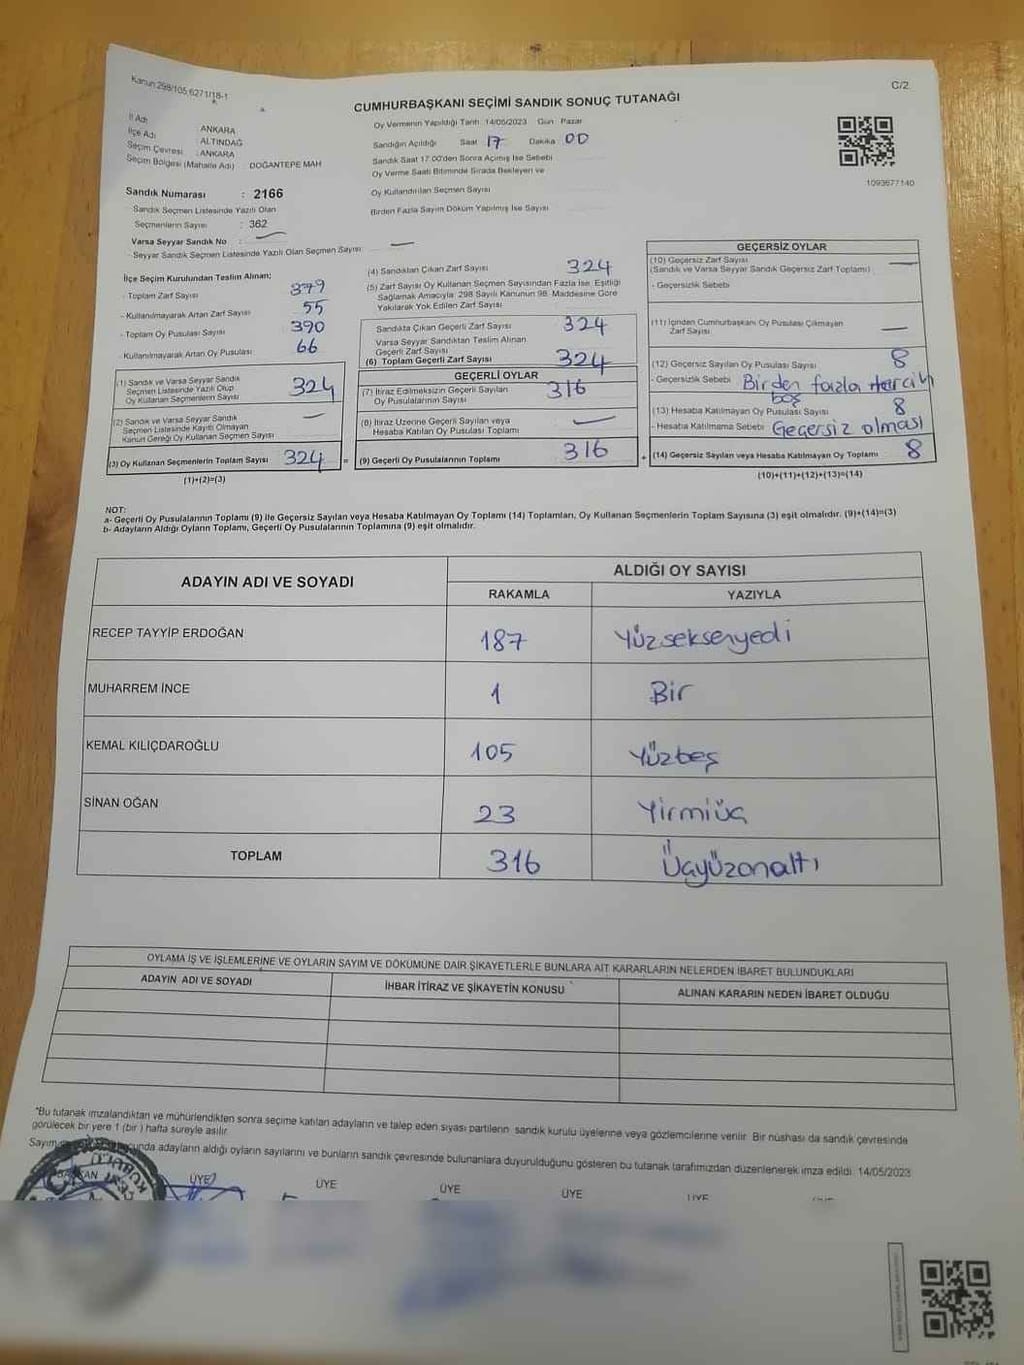 Kanun:298/105,6271/18-1
C/2
CUMHURBAŞKANI SEÇİMİ SANDIK SONUÇ TUTANAĞI
İl Adı : ANKARA
İlçe Adı : ALTINDAĞ
Seçim Çevresi : ANKARA
Seçim Bölgesi (Mahalle Adı) : DOĞANTEPE MAH
Sandık Numarası : 2166
Sandık Seçmen Listesinde Yazılı Olan
Seçmenlerin Sayısı : 362
Varsa Seyyar Sandık No : —
- Seyyar Sandık Seçmen Listesinde Yazılı Olan Seçmen Sayısı : —
Oy Vermenin Yapıldığı Tarih 14/05/2023 Gün Pazar
Sandığın Açıldığı Saat 17 Dakika 00
Sandık Saat 17.00'den Sonra Açılmış İse Sebebi
Oy Verme Saati Bitiminde Sırada Bekleyen ve
Oy Kullandırılan Seçmen Sayısı
Birden Fazla Sayım Döküm Yapılmış İse Sayısı
1093677140
İlçe Seçim Kurulundan Teslim Alınan;
- Toplam Zarf Sayısı 379
- Kullanılmayarak Artan Zarf Sayısı 55
- Toplam Oy Pusulası Sayısı 390
- Kullanılmayarak Artan Oy Pusulası 66
(1) Sandık ve Varsa Seyyar Sandık
Seçmen Listesinde Yazılı Olup
Oy Kullanan Seçmenlerin Sayısı 324
(2) Sandık ve Varsa Seyyar Sandık
Seçmen Listesinde Kaydı Olmayan
Kanun Gereği Oy Kullanan Seçmen Sayısı —
(3) Oy Kullanan Seçmenlerin Toplam Sayısı 324 =
(1)+(2)=(3)
(4) Sandıktan Çıkan Zarf Sayısı 324
(5) Zarf Sayısı Oy Kullanan Seçmen Sayısından Fazla İse, Eşitliği
Sağlamak Amacıyla 298 Sayılı Kanunun 98. Maddesine Göre
Yakılarak Yok Edilen Zarf Sayısı
Sandıkta Çıkan Geçerli Zarf Sayısı 324
Varsa Seyyar Sandıktan Teslim Alınan
Geçerli Zarf Sayısı
(6) Toplam Geçerli Zarf Sayısı 324
GEÇERLİ OYLAR
(7) İtiraz Edilmeksizin Geçerli Sayılan
Oy Pusulalarının Sayısı 316
(8) İtiraz Üzerine Geçerli Sayılan veya
Hesaba Katılan Oy Pusulası Toplamı —
(9) Geçerli Oy Pusulalarının Toplamı 316 +
GEÇERSİZ OYLAR
(10) Geçersiz Zarf Sayısı —
(Sandık ve Varsa Seyyar Sandık Geçersiz Zarf Toplamı)
- Geçersizlik Sebebi
(11) İçinden Cumhurbaşkanı Oy Pusulası Çıkmayan
Zarf Sayısı —
(12) Geçersiz Sayılan Oy Pusulası Sayısı 8
- Geçersizlik Sebebi Birden fazla tercih
boş
(13) Hesaba Katılmayan Oy Pusulası Sayısı 8
- Hesaba Katılmama Sebebi Geçersiz olması
(14) Geçersiz Sayılan veya Hesaba Katılmayan Oy Toplamı 8
(10)+(11)+(12)+(13)=(14)
NOT:
a- Geçerli Oy Pusulalarının Toplamı (9) ile Geçersiz Sayılan veya Hesaba Katılmayan Oy Toplamı (14) Toplamları, Oy Kullanan Seçmenlerin Toplam Sayısına (3) eşit olmalıdır. (9)+(14)=(3)
b- Adayların Aldığı Oyların Toplamı, Geçerli Oy Pusulalarının Toplamına (9) eşit olmalıdır.
ADAYIN ADI VE SOYADI
ALDIĞI OY SAYISI
RAKAMLA YAZIYLA
RECEP TAYYİP ERDOĞAN 187 Yüzseksenyedi
MUHARREM İNCE 1 Bir
KEMAL KILIÇDAROĞLU 105 Yüzbeş
SİNAN OĞAN 23 Yirmiüç
TOPLAM 316 Üçyüzonaltı
OYLAMA İŞ VE İŞLEMLERİNE VE OYLARIN SAYIM VE DÖKÜMÜNE DAİR ŞİKAYETLERLE BUNLARA AİT KARARLARIN NELERDEN İBARET BULUNDUKLARI
ADAYIN ADI VE SOYADI İHBAR İTİRAZ VE ŞİKAYETİN KONUSU ALINAN KARARIN NEDEN İBARET OLDUĞU
*Bu tutanak imzalandıktan ve mühürlendikten sonra seçime katılan adayların ve talep eden siyasi partilerin sandık kurulu üyelerine veya gözlemcilerine verilir. Bir nüshası da sandık çevresinde
görülecek bir yere 1 (bir ) hafta süreyle asılır.
Sayım adayların aldığı oyların sayılarını ve bunların sandık çevresinde bulunanlara duyurulduğunu gösteren bu tutanak tarafımızdan düzenlenerek imza edildi. 14/05/2023
BAŞKAN ÜYE ÜYE ÜYE ÜYE ÜYE